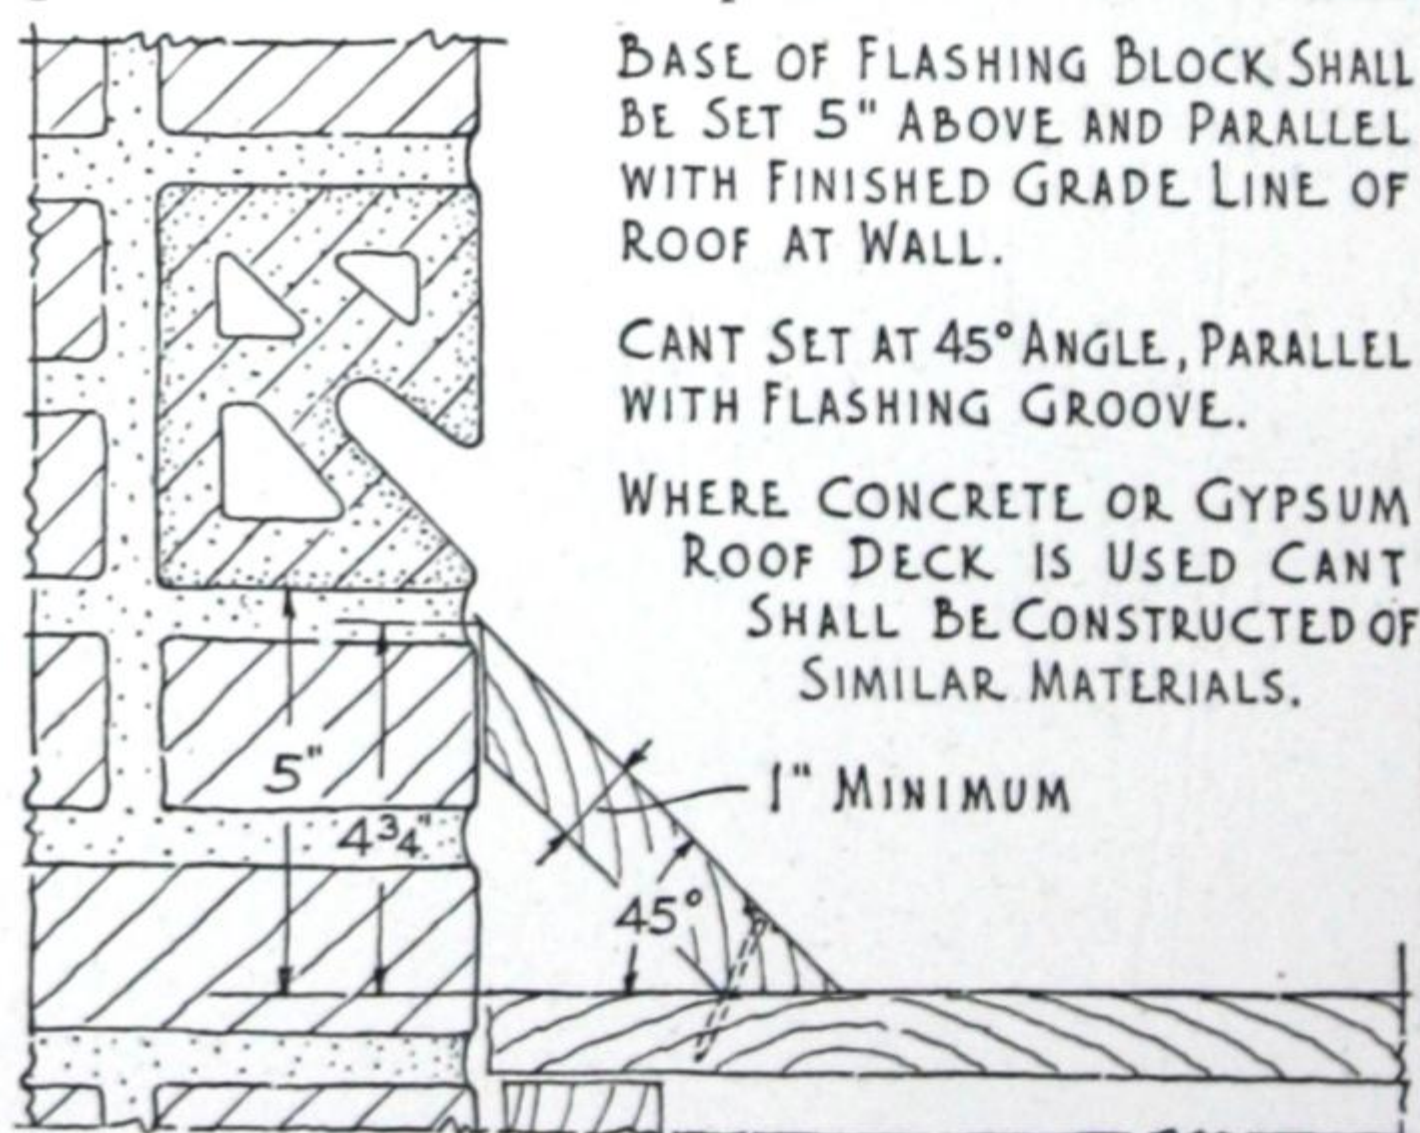 BASE OF FLASHING BLOCK SHALL
BE SET 5" ABOVE AND PARALLEL
WITH FINISHED GRADE LINE OF
ROOF AT WALL.
CANT SET AT 45° ANGLE, PARALLEL
WITH FLASHING GROOVE.
WHERE CONCRETE OR GYPSUM
ROOF DECK IS USED CANT
SHALL BE CONSTRUCTED OF
SIMILAR MATERIALS.
5"
1" MINIMUM
4 3/4"
45°